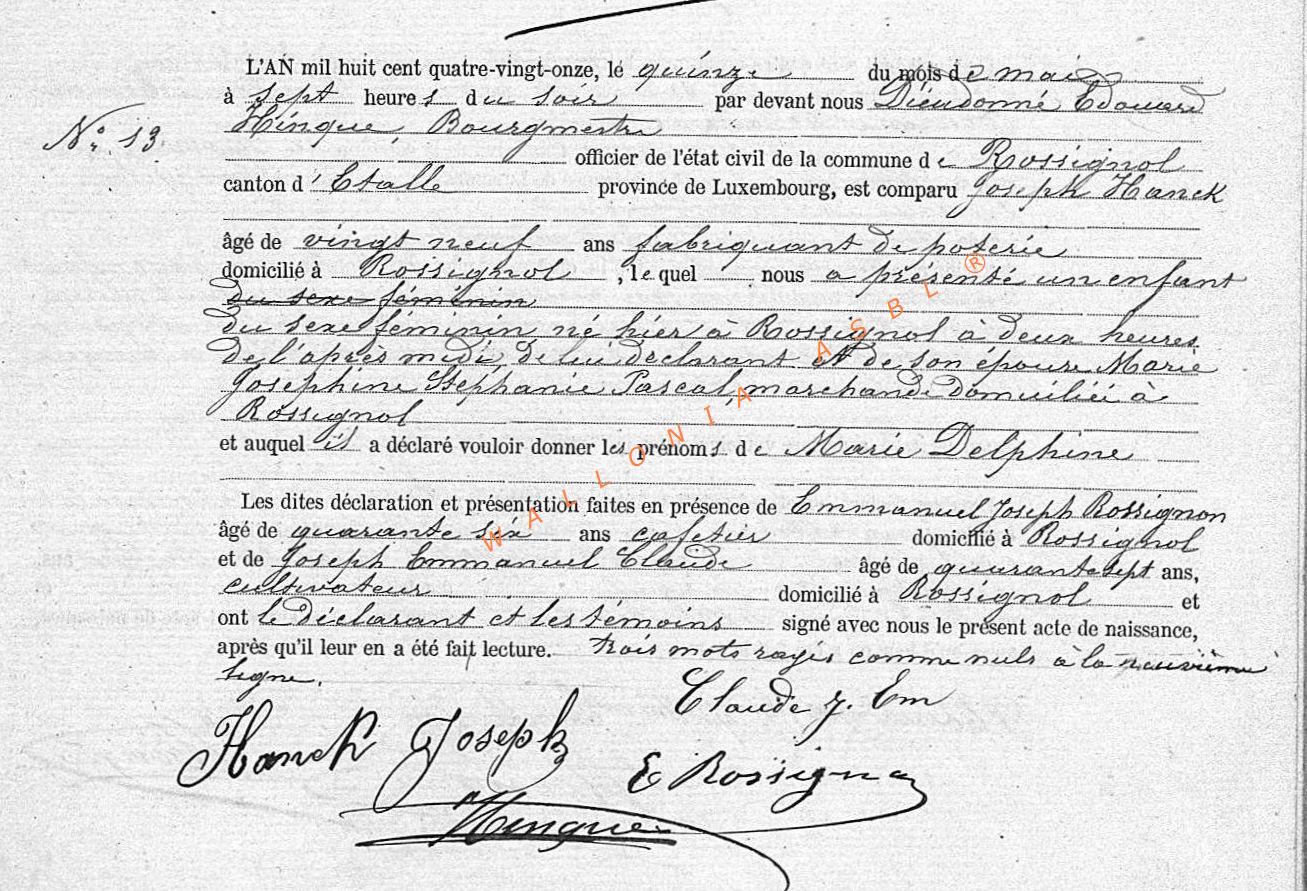 L'AN mil huit cent quatre-vingt-onze, le quinze du mois de mai
à sept heures du soir par devant nous Dieudonné Edouard
N° 13. Hinque, Bourgmestre
officier de l'état civil de la commune de Rossignol
canton d'Etalle province de Luxembourg, est comparu Joseph Hanck
âgé de vingt neuf ans fabriquant de poterie
domicilié à Rossignol, lequel nous a présenté un enfant
du sexe féminin
du sexe féminin né hier à Rossignol à deux heures
de l'après midi, de lui déclarant et de son épouse Marie
Josephine Stephanie Pascal, marchande domiciliée à
Rossignol
et auquel il a déclaré vouloir donner les prénoms de Marie Delphine
Les dites déclaration et présentation faites en présence de Emmanuel Joseph Rossignon
âgé de quarante six ans cafetier domicilié à Rossignol
et de Joseph Emmanuel Claude âgé de quarante sept ans,
cultivateur domicilié à Rossignol et
ont le déclarant et les témoins signé avec nous le présent acte de naissance,
après qu'il leur en a été fait lecture. trois mots rayés comme nuls à la neuvième
ligne.
Claude J. Em
Hanck Joseph
E Rossignon
Hinque
WALLONIA ASBL ®